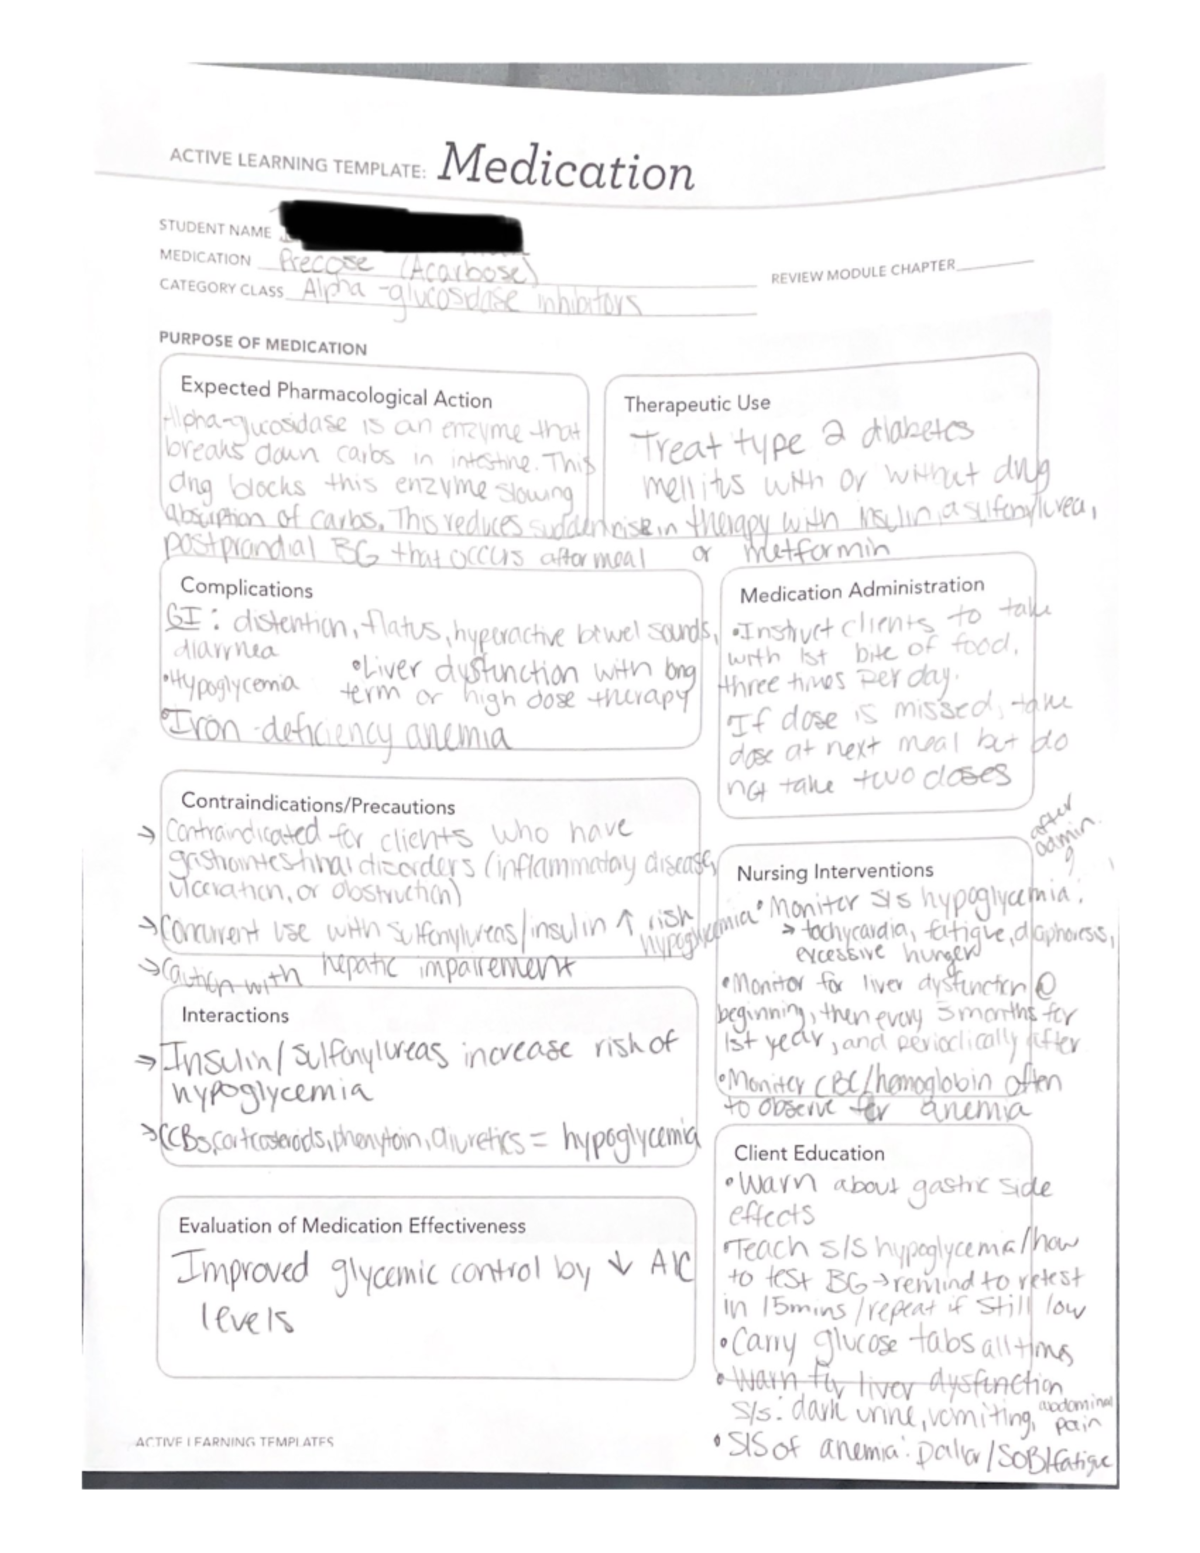 ACTIVE LEARNING TEMPLATE: Medication
STUDENT NAME
MEDICATION Precose (Acarbose)
REVIEW MODULE CHAPTER
CATEGORY CLASS Alpha-glucosidase inhibitors
PURPOSE OF MEDICATION
Expected Pharmacological Action
Alpha-glucosidase is an enzyme that
breaks down carbs in intestine. This
drug blocks this enzyme slowing
absorption of carbs. This reduces sudden rise in
postprandial BG that occurs after meal
Therapeutic Use
Treat type 2 diabetes
mellitus with or without drug
therapy with insulin, a sulfonylurea,
or metformin
Complications
GI: distention, flatus, hyperactive bowel sounds,
diarrhea
•Hypoglycemia
•Liver dysfunction with long
term or high dose therapy
•Iron-deficiency anemia
Medication Administration
•Instruct clients to take
with 1st bite of food,
three times per day.
If dose is missed, take
dose at next meal but do
not take two doses
Contraindications/Precautions
→ Contraindicated for clients who have
gastrointestinal disorders (inflammatory disease,
ulceration, or obstruction)
→ Concurrent use with sulfonylureas/insulin ↑ risk
hypoglycemia
→ Caution with hepatic impairement
Nursing Interventions
after
admin.
• Monitor s/s hypoglycemia
> tachycardia, fatigue, diaphoresis,
excessive hunger
•Monitor for liver dysfunction @
beginning, then every 3 months for
1st year, and periodically after
•Monitor CBC/hemoglobin often
to observe for anemia
Interactions
→ Insulin/sulfonylureas increase risk of
hypoglycemia
→ CCBs, corticosteroids, phenytoin, diuretics = hypoglycemia
Client Education
•Warn about gastric side
effects
Teach s/s hypoglycemia/how
to test BG → remind to retest
in 15mins/repeat if still low
•Carry glucose tabs all times
• Warn for liver dysfunction
s/s: dark urine, vomiting, abdominal
pain
• S/S of anemia: pallor/SOB/fatigue
Evaluation of Medication Effectiveness
Improved glycemic control by ↓ A1C
levels
ACTIVE LEARNING TEMPLATES